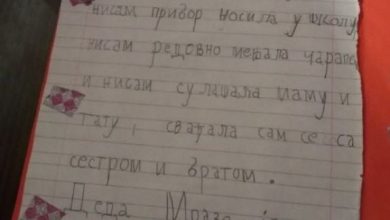 нисам прибор носила у школу,
нисам редовно мењала чарапе
и нисам слушала маму и
тату, свађала сам се са
сестром и братом.
Деда Мразе